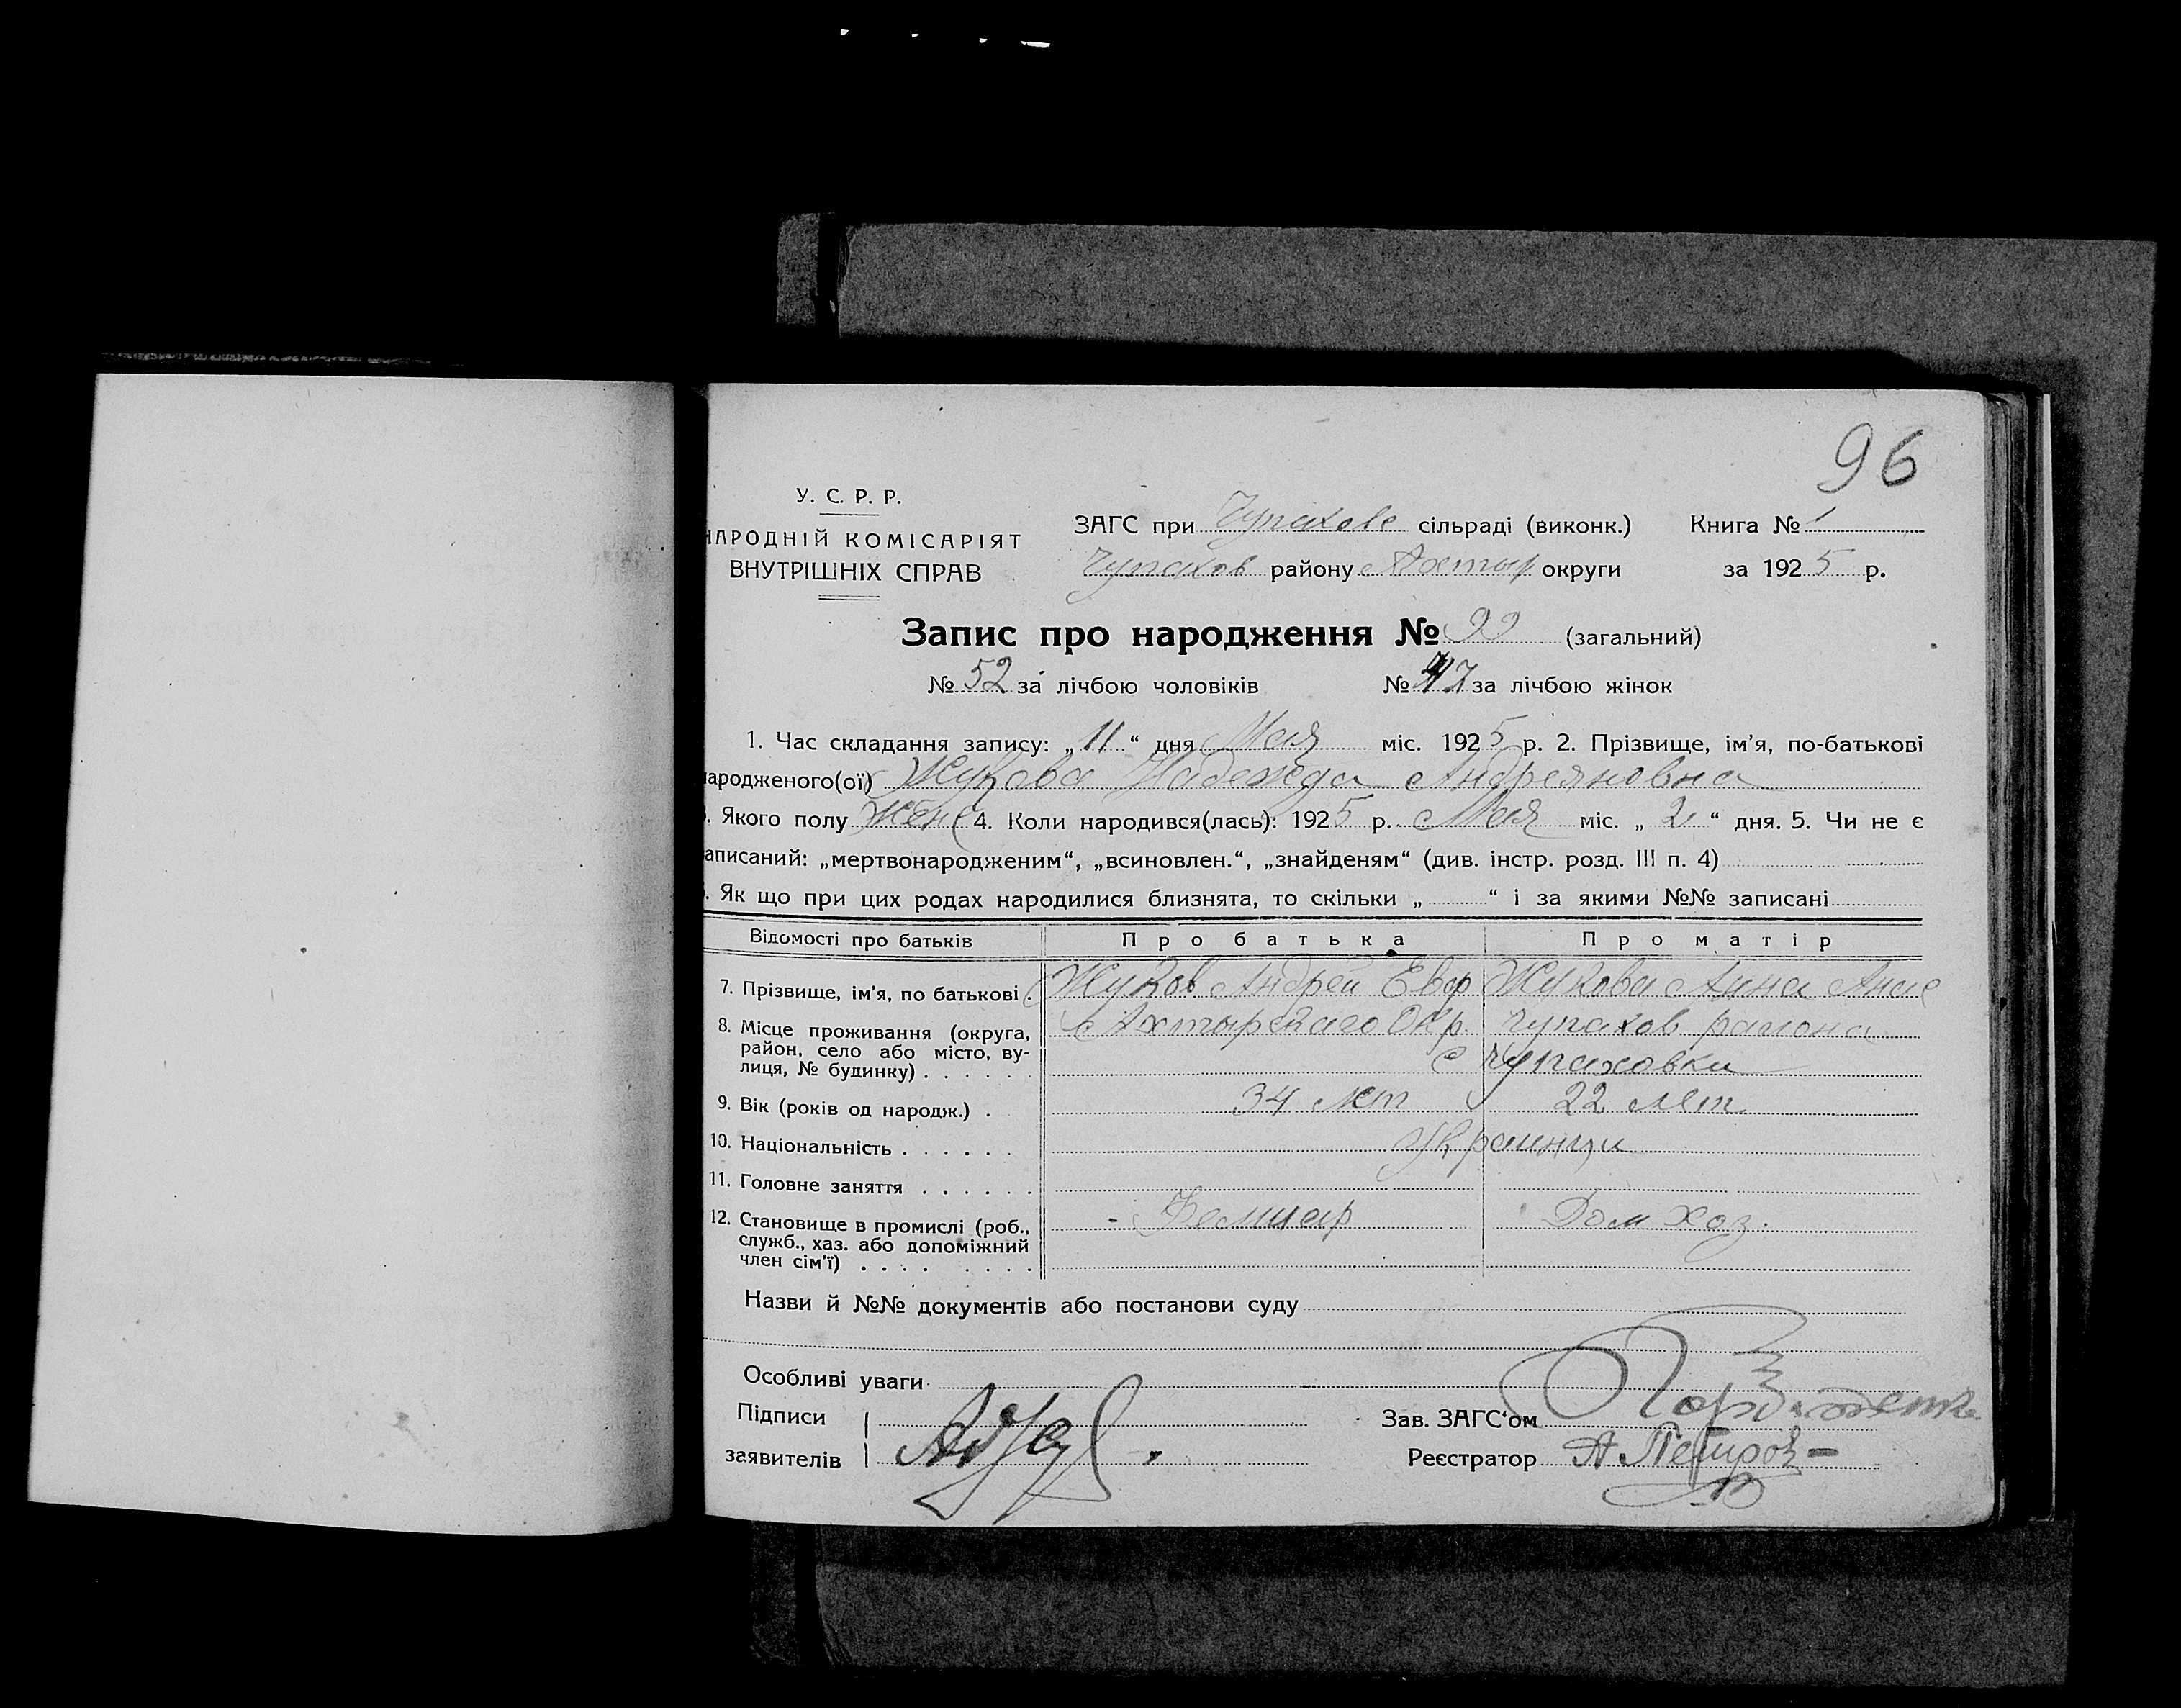 96
У. С. Р. Р.
НАРОДНІЙ КОМІСАРІЯТ
ВНУТРІШНІХ СПРАВ
ЗАГС при Чупахове сільраді (виконк.) Книга № 1
Чупахов району Ахтыр округи за 1925 р.
Запис про народження № 99 (загальний)
№ 52 за лічбою чоловіків № 47 за лічбою жінок
1. Час складання запису: „11“ дня Мая міс. 1925 р. 2. Прізвище, ім’я, по-батькові
народженого(ої) Жукова Надежда Андреяновна
3. Якого полу Жен 4. Коли народився(лась): 1925 р. Мая міс. „2“ дня. 5. Чи не є
записаний: „мертвонародженим“, „всиновлен.“, „знайденям“ (див. інстр. розд. III п. 4)
6. Як що при цих родах народилися близнята, то скільки „ “ і за якими №№ записані
Відомості про батьків Про батька Про матір
7. Прізвище, ім’я, по батькові . Жуков Андрей Евф Жукова Анна
8. Місце проживання (округа, Ахтырскаго Окр. Чупахов района
район, село або місто, ву-
лиця, № будинку) . . . . . с Чупаховки
9. Вік (років од народж.) . 34 лет 22 лет
10. Національність . . . . . . Украинци
11. Головне заняття . . . . . .
12. Становище в промислі (роб., Дом хоз.
служб., хаз. або допоміжний
член сім’ї) . . . . . . . .
Назви й №№ документів або постанови суду
Особливі уваги
Підписи
заявителів
Зав. ЗАГС‘ом
Реєстратор А Петров